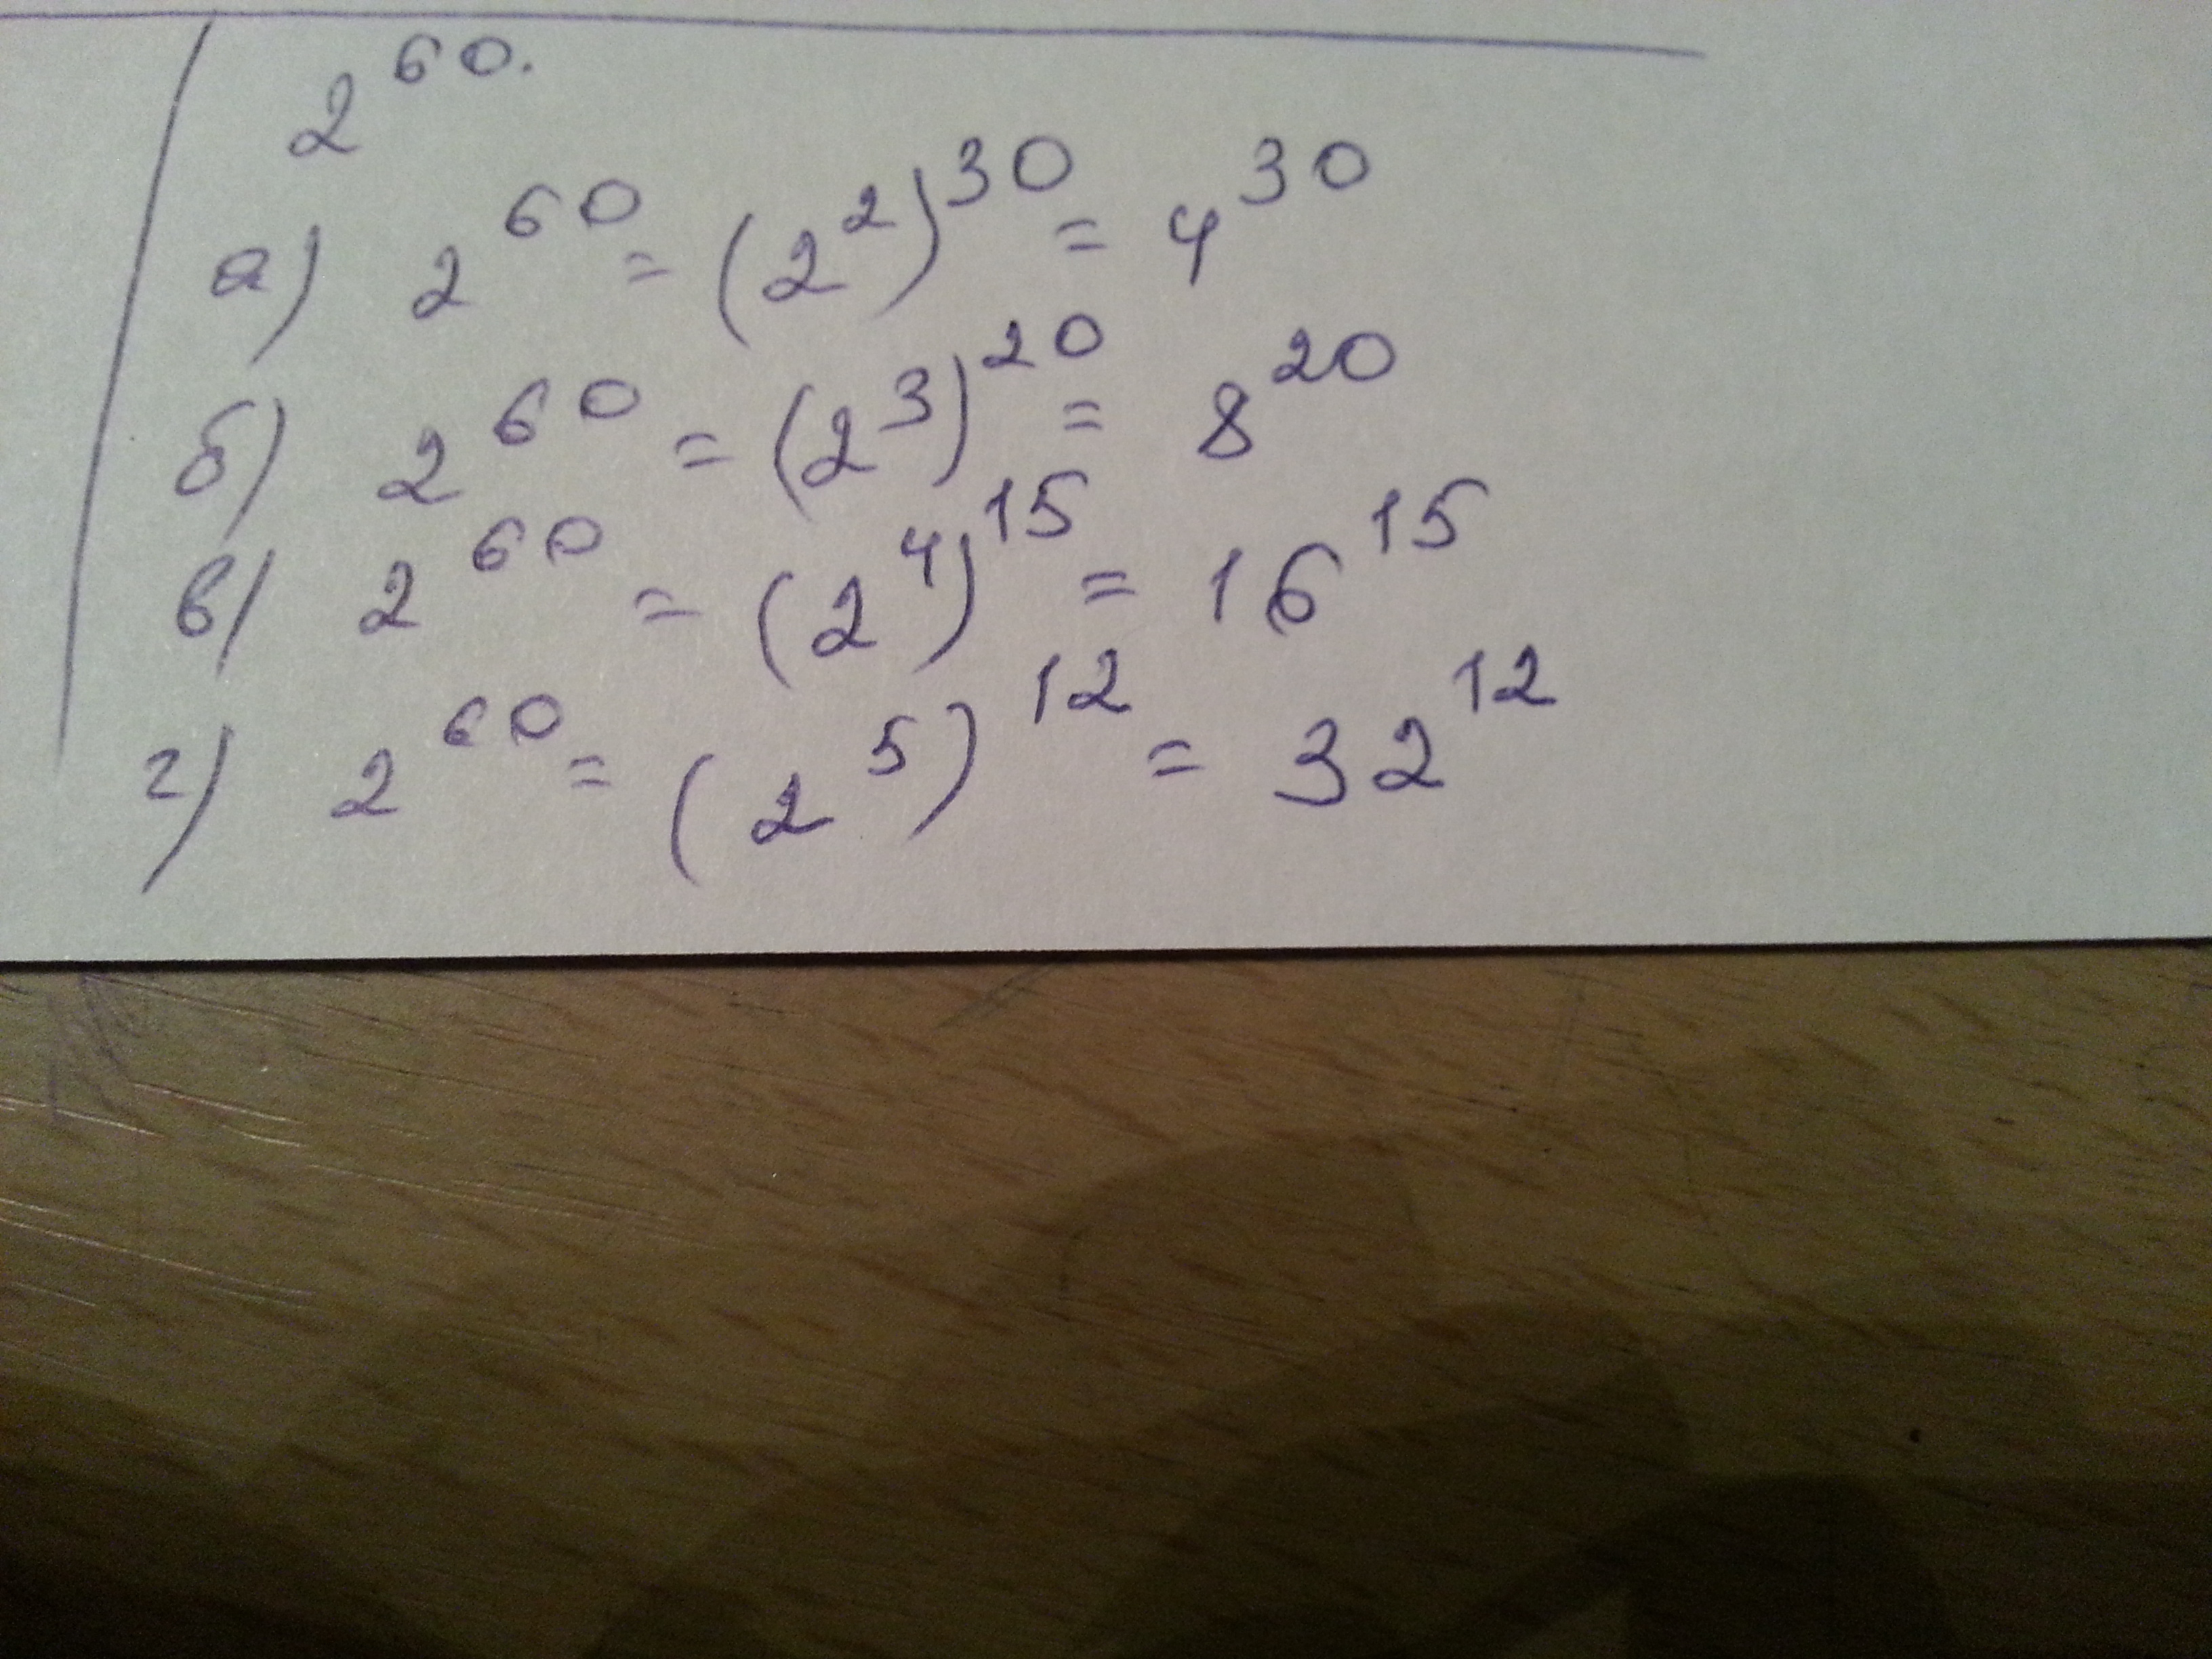 2^60.
а) 2^60 = (2^2)^30 = 4^30
б) 2^60 = (2^3)^20 = 8^20
в) 2^60 = (2^4)^15 = 16^15
г) 2^60 = (2^5)^12 = 32^12